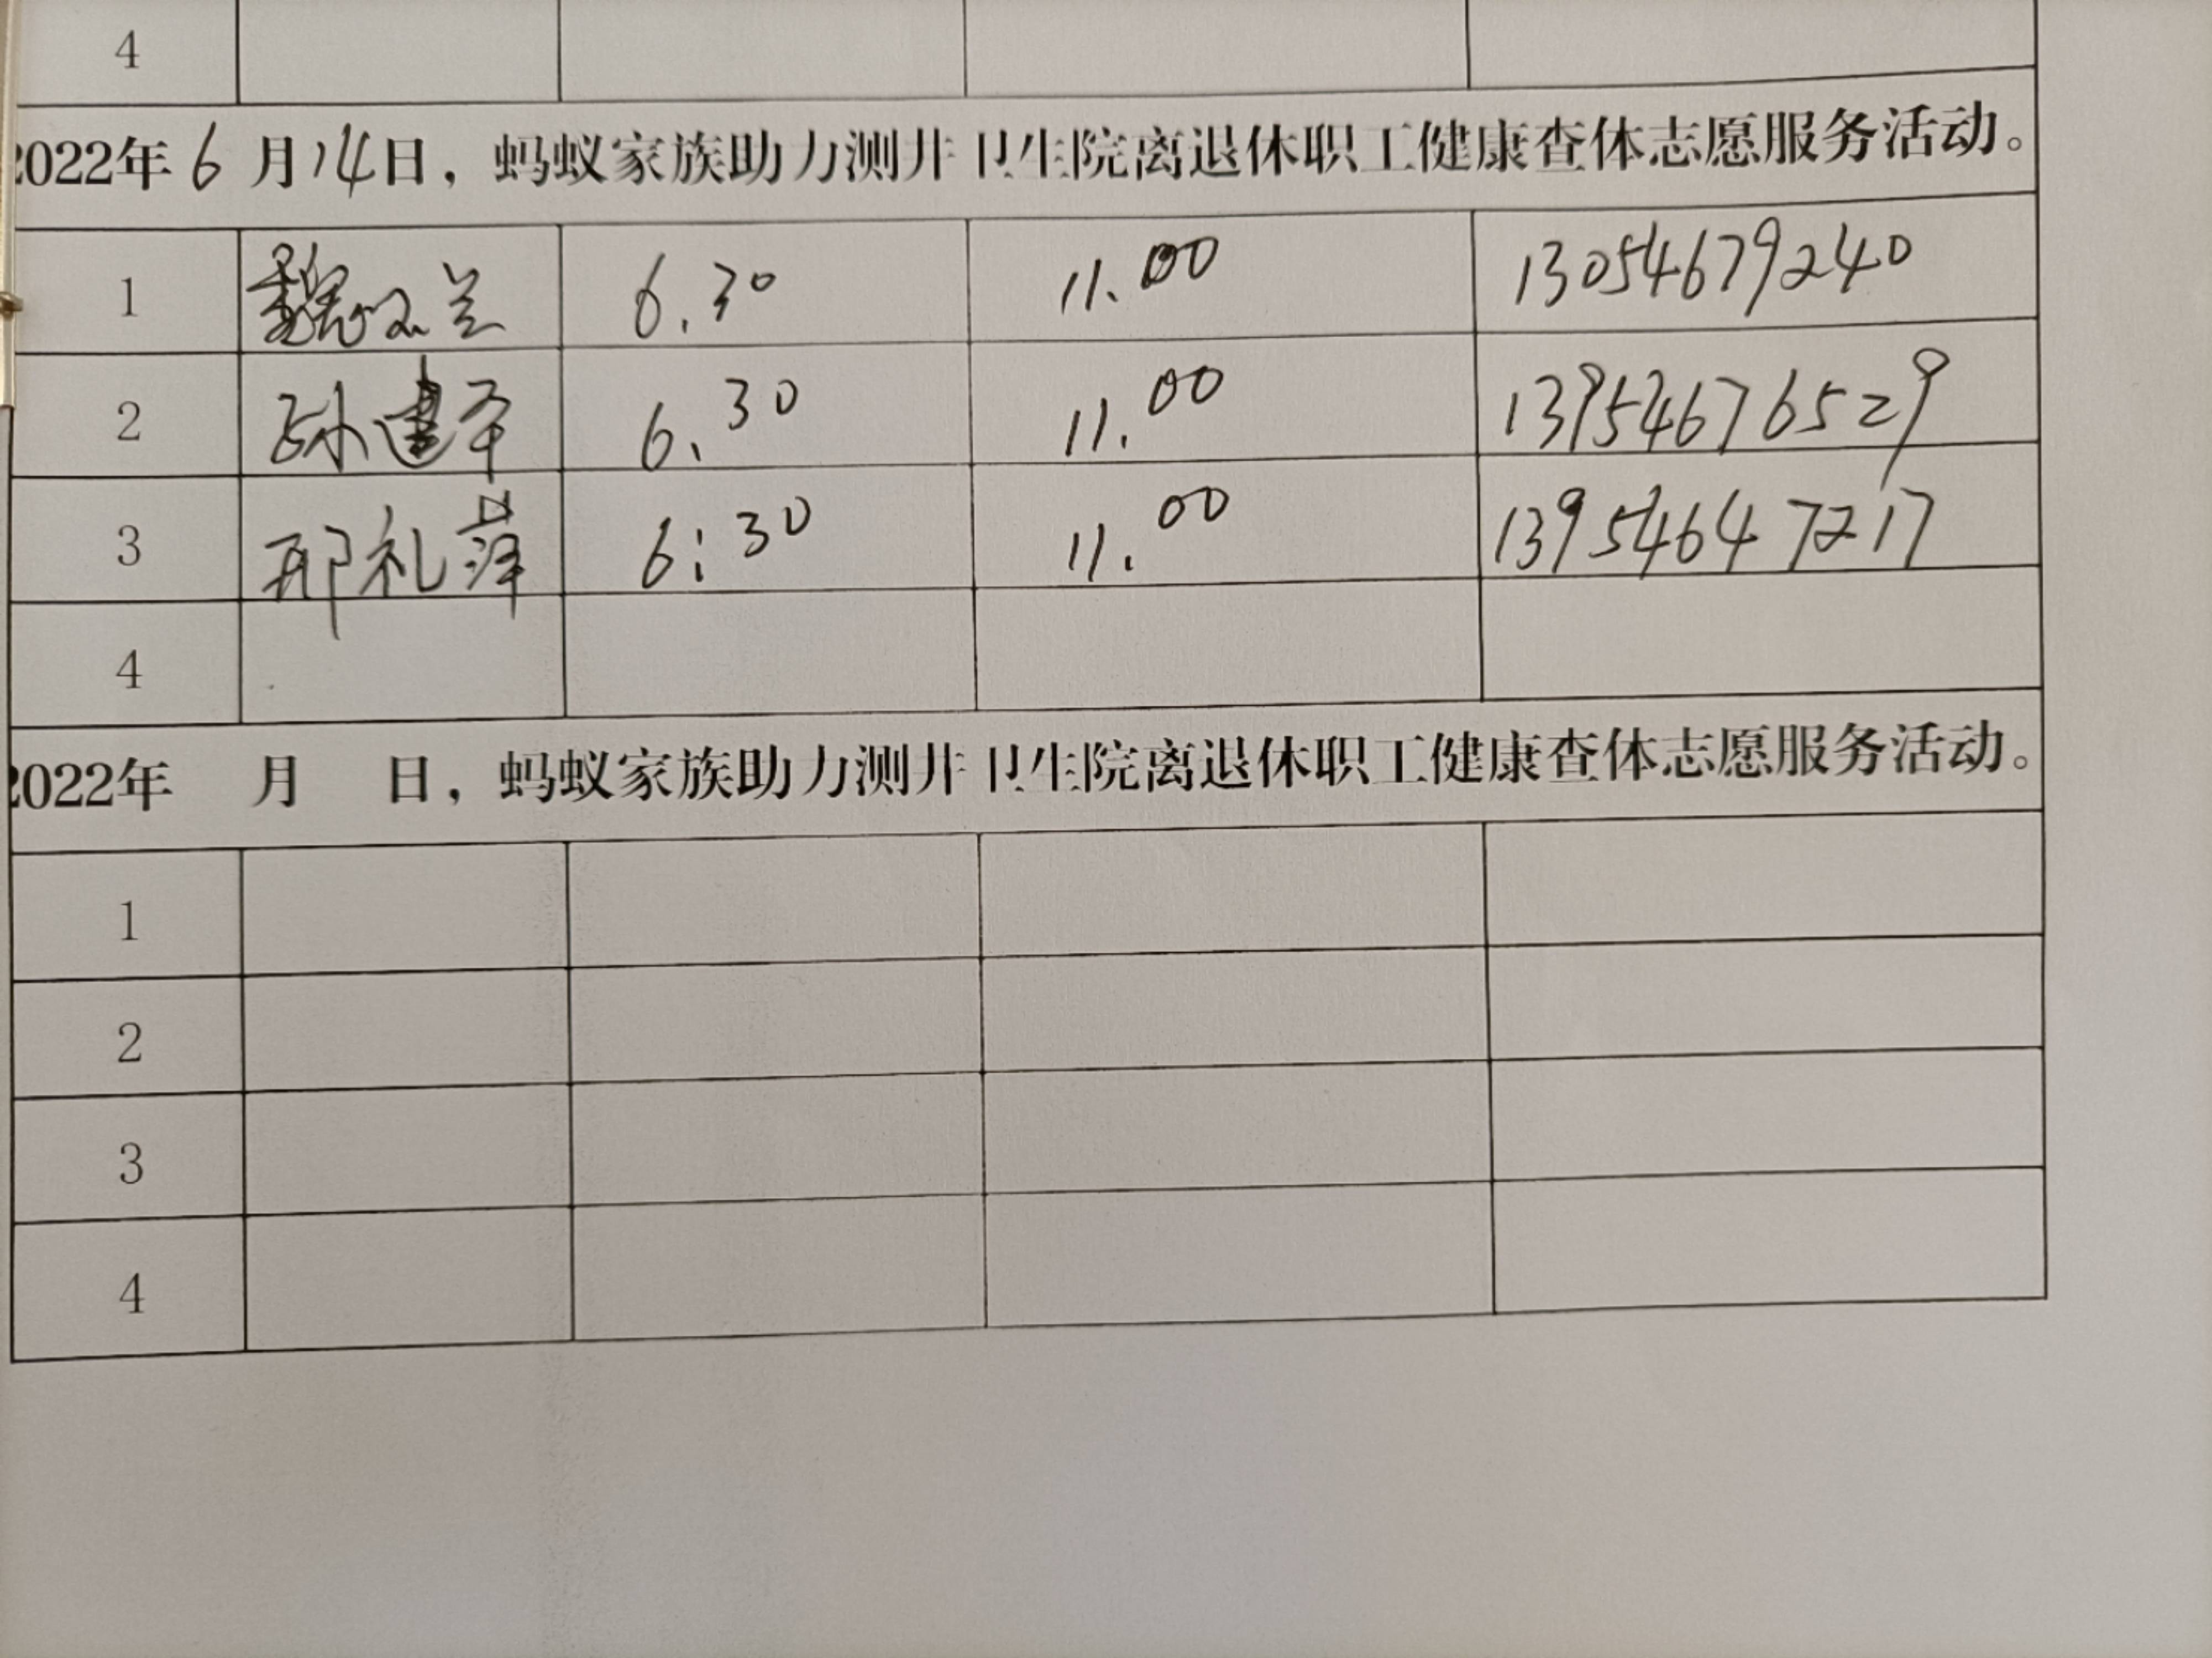 4
2022年6月14日，蚂蚁家族助力测井卫生院离退休职工健康查体志愿服务活动。
1 魏 兰 6.30 11.00 13054679240
2 孙建 6.30 11.00 13954676529
3 邢礼萍 6:30 11.00 13954647217
4
2022年 月 日，蚂蚁家族助力测井卫生院离退休职工健康查体志愿服务活动。
1
2
3
4